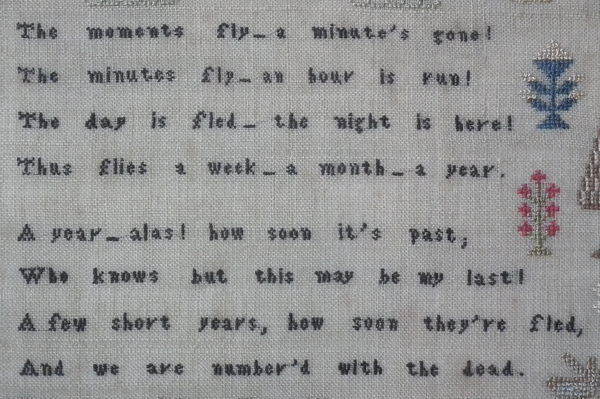 The moments fly_ a minute's gone!
The minutes fly_ an hour is run!
The day is fled_ the night is here!
Thus flies a week_ a month_ a year.
A year_ alas! how soon it's past,
Who knows but this may be my last!
A few short years, how soon they're fled,
And we are number'd with the dead.